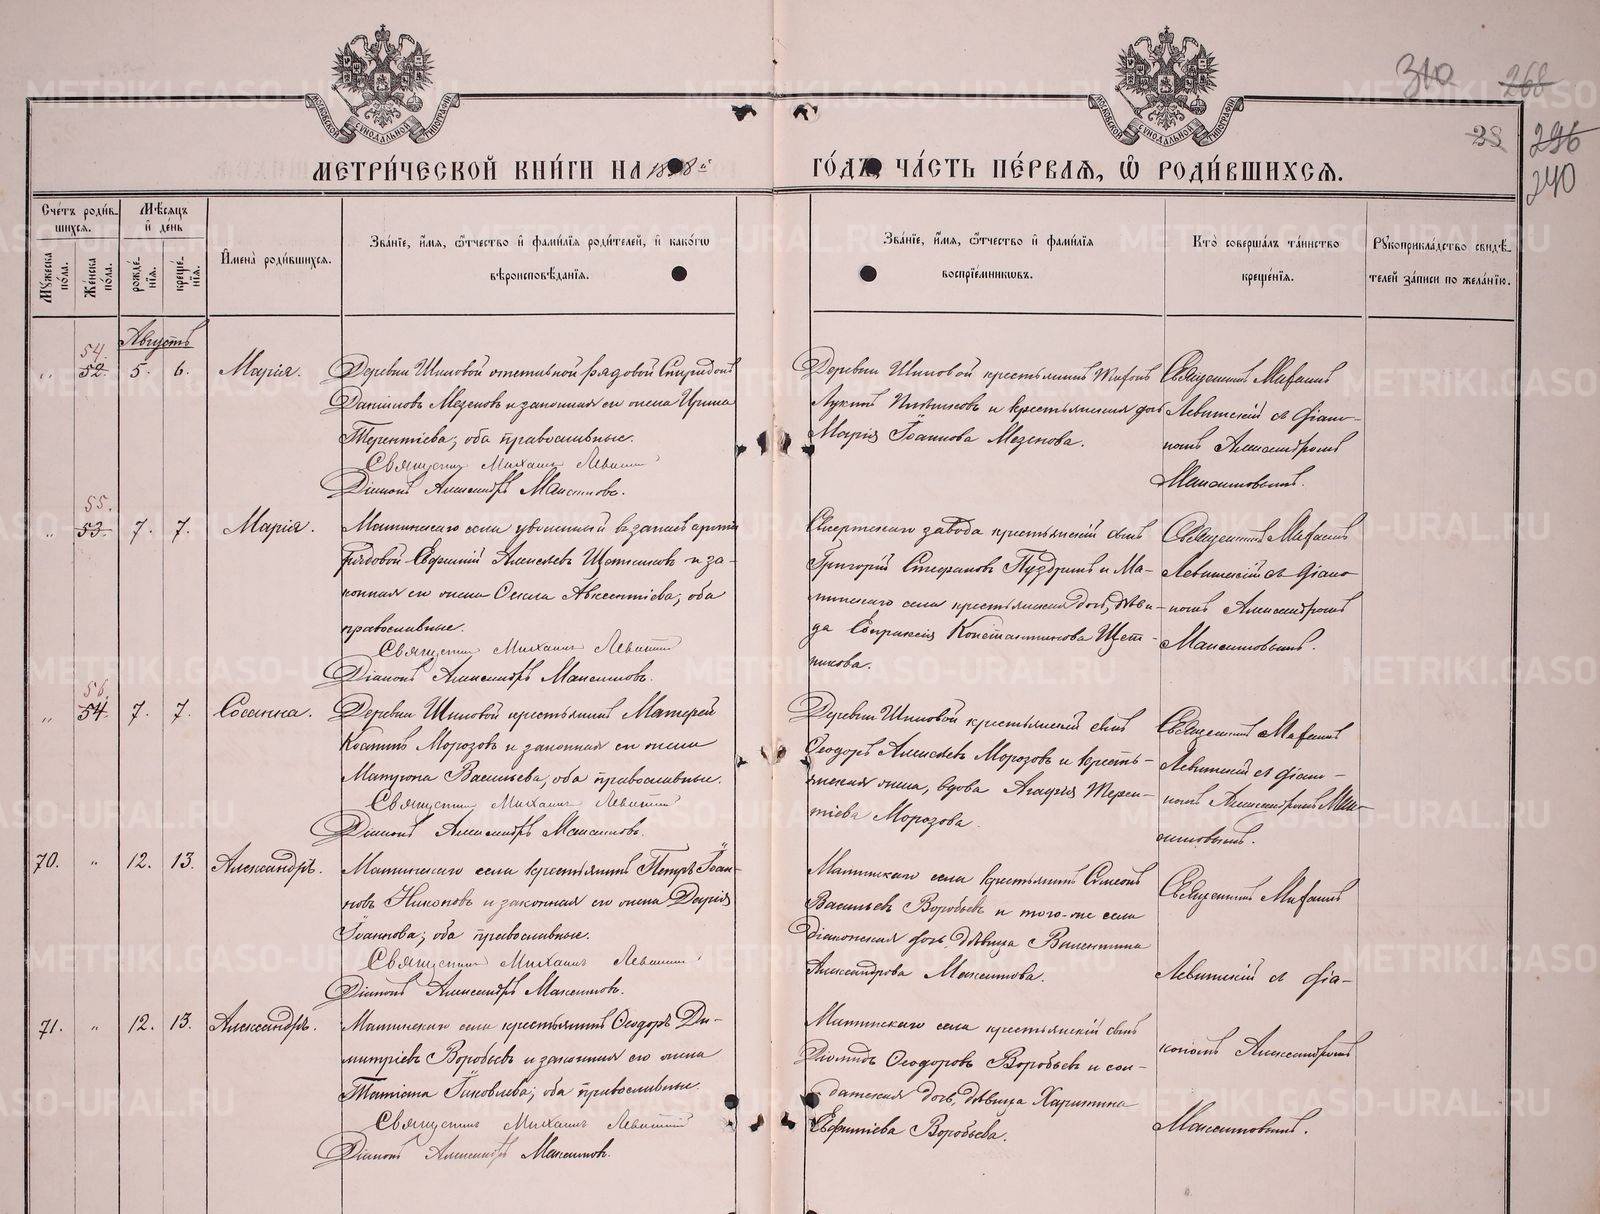 310 268
28 296
240
МОСКОВСКОЙ СѴНОДАЛЬНОЙ ТИПОГРАФІИ
МОСКОВСКОЙ СѴНОДАЛЬНОЙ ТИПОГРАФІИ
МЕТРИ́ЧЕСКОЙ КНИ́ГИ НА 1898й
ГО́ДЪ, ЧА́СТЬ ПЕ́РВАЯ, Ѡ РОДИ́ВШИХСЯ.
Сче́тъ роди́вшихся.
Му́жеска по́ла.
Же́нска по́ла.
Мѣ́сяцъ и҆ де́нь
рожде́нїѧ.
креще́нїѧ.
И҆мена̀ роди́вшихся.
Зва́нїе, и҆́мѧ, ѻ҆́тчество и҆ фами́лїѧ роди́телей, и҆ како́гѡ
вѣроисповѣ́данїѧ.
Зва́нїе, и҆́мѧ, ѻ҆́тчество и҆ фами́лїѧ
воспрїе́мникѡвъ.
Кто̀ соверша́лъ та́инство
креще́нїѧ.
Рꙋкоприкла́дство свидѣ́телей за́писи по жела́нїю.
Августъ
54.
„ 52. 5. 6. Марія.
Деревни Шиповой отставной рядовой Спиридонъ
Даниловъ Мезеновъ и законная его жена Ирина
Терентіева; оба православные.
Священникъ Михаилъ Левитскій
Діаконъ Александръ Максимовъ.
Деревни Шиповой крестьянинъ
Лукинъ и крестьянская дочь
Марія Іоаннова Мезенова.
Священникъ Михаилъ
Левитскій съ діако-
номъ Александромъ
Максимовымъ.
55.
„ 53. 7. 7. Марія.
Маминскаго села уволенный въ запасъ арміи
рядовой Евфимій Алексѣевъ Щетниковъ и за-
конная его жена Авксентіева; оба
православные.
Священникъ Михаилъ Левитскій
Діаконъ Александръ Максимовъ.
Сысертскаго завода крестьянскій сынъ
Григорій Стефановъ и Ма-
минскаго села крестьянская дочь, дѣви-
ца Евпраксія Константинова Щет-
никова.
Священникъ Михаилъ
Левитскій съ діако-
номъ Александромъ
Максимовымъ.
56.
„ 54. 7. 7. Сосанна.
Деревни Шиповой крестьянинъ
Морозовъ и законная его жена
Матрона Васильева, оба православные.
Священникъ Михаилъ Левитскій
Діаконъ Александръ Максимовъ.
Деревни Шиповой крестьянскій сынъ
Ѳеодоръ Алексѣевъ Морозовъ и кресть-
янская жена, вдова Агафія Терен-
тіева Морозова.
Священникъ Михаилъ
Левитскій съ діако-
номъ Александромъ Мак-
симовымъ.
70. „ 12. 13. Александръ.
Маминскаго села крестьянинъ Петръ Іоан-
новъ Никоновъ и законная его жена Дарія
Іоаннова; оба православные.
Священникъ Михаилъ Левитскій
Діаконъ Александръ Максимовъ.
Маминскаго села крестьянинъ Симеонъ
Васильевъ Воробьевъ и того-же села
діаконская дочь, дѣвица Валентина
Александрова Максимова.
Священникъ Михаилъ
Левитскій съ діа-
71. „ 12. 13. Александръ.
Маминскаго села крестьянинъ Ѳеодоръ Ди-
митріевъ Воробьевъ и законная его жена
Татіана Іаковлева; оба православные.
Священникъ Михаилъ Левитскій
Діаконъ Александръ Максимовъ.
Маминскаго села крестьянскій сынъ
Діомидъ Ѳеодоровъ Воробьевъ и сол-
датская дочь, дѣвица Харитина
Евфиміева Воробьева.
кономъ Александромъ
Максимовымъ.
METRIKI.GASO-URAL.RU